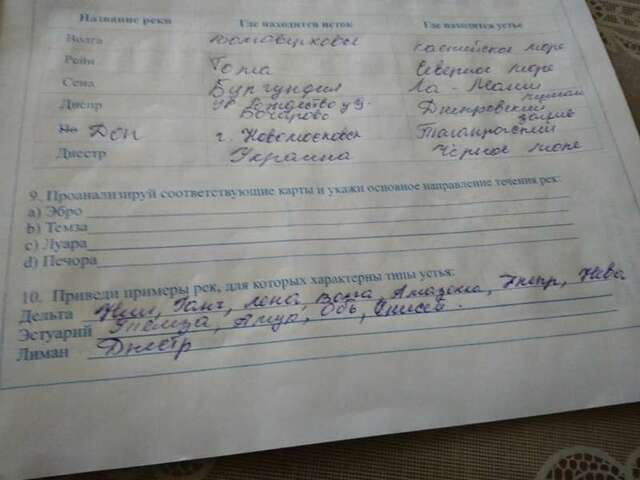 Название реки Где находится исток Где находится устье
Волга Волговерховье Каспийское море
Рейн Тома Северное море
Сена Бургундия Ла-Манш
Днепр Бочарово Днепровский лиман
До Дон г. Новомосковск Таганрогский залив
Днестр Украина Чёрное море
9. Проанализируй соответствующие карты и укажи основное направление течения рек:
a) Эбро
b) Темза
c) Луара
d) Печора
10. Приведи примеры рек, для которых характерны типы устья:
Дельта Нил, Ганг, Лена, Волга Амазонка, Днепр, Нева
Эстуарий Темза, Амур, Обь, Енисей.
Лиман Днестр